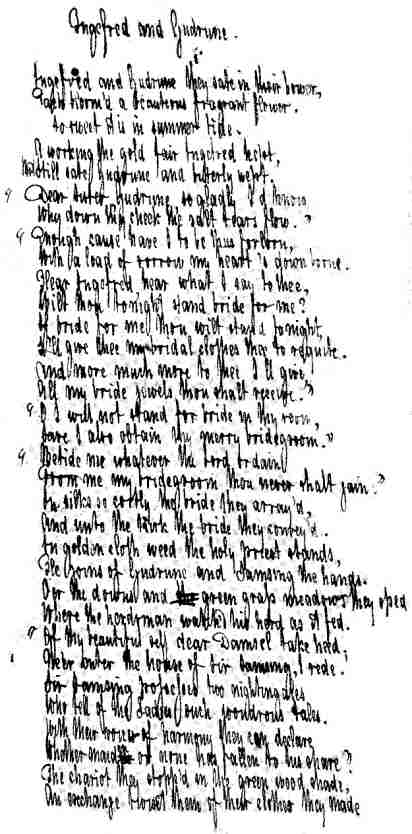 Ingefred and Gudrune.
Ingefred and Gudrune they sate in their bower,
Each bloom'd a beauteous fragrant flower.
So sweet it is in summer tide.
A working the gold fair Ingefred kept,
still sate Gudrune and bitterly wept.
"Dear sister Gudrune so gladly I'd know
Why down thy cheek the salt tears flow."
"Enough cause have I to be thus forlorn,
With a load of sorrow my heart is down borne.
Hear Ingefred hear what I say to thee,
Wilt thou tonight stand bride for me?
If bride for me thou wilt stand tonight,
I'll give thee my bridal clothes thee to requite.
And more much more to thee I'll give,
All my bride jewels thou shalt receive."
"O I will not stand for bride in thy room,
Save I also obtain thy merry bridegroom."
"Betide me whatever the Lord ordain
From me my bridegroom thou never shalt gain."
In silks so costly the bride they array'd,
And unto the kirk the bride they convey'd.
In golden cloth weed the holy priest stands,
He joins of Gudrune and Samsing the hands.
O'er the downs and green grass meadows they sped
Where the herdsman watch'd his herd as it fed.
"Of thy beauteous self dear Damsel take heed,
Ne'er enter the house of Sir Samsing, I rede.
Sir Samsing possesses two nightingales
Who tell of the Ladies such wondrous tales.
With their voices of harmony they can declare
Whether maid or none has fallen to his share?
The chariot they stopp'd in the green wood shade,
An exchange 'twixt them of their clothes they made